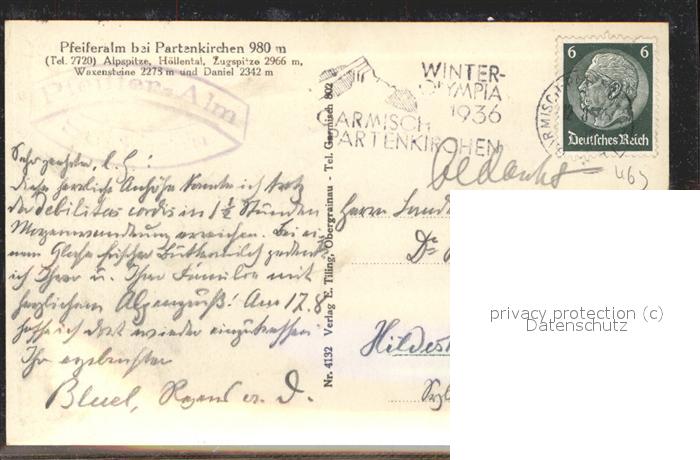 Pfeiferalm bei Partenkirchen 980 m
(Tel. 2720) Alpspitze, Höllental, Zugspitze 2966 m,
Waxensteine 2273 m und Daniel 2342 m
Pfeiffer-Alm
WINTER-
OLYMPIA
1936
GARMISCH
PARTENKIRCHEN
6 6
Deutsches Reich
GARMISCH-
Gedankt
Sehr geehrter, l. H.:
Diese herrliche Anhöhe konnte ich trotz
der debilitas cordis in 1½ Stunden
Morgenwanderung erreichen. Bei ei-
nem Glase frischer Buttermilch gedenk
ich Ihrer u. Ihrer Familie mit
herzlichem Alpengruß! Am 17.8
hoffe ich dort wieder einzutreffen
Ihr ergebenster
Bluel,
Nr. 4132 Verlag E. Tiling, Obergrainau - Tel. Garmisch 802
Herrn
Dr.
Hildes
privacy protection (c)
Datenschutz